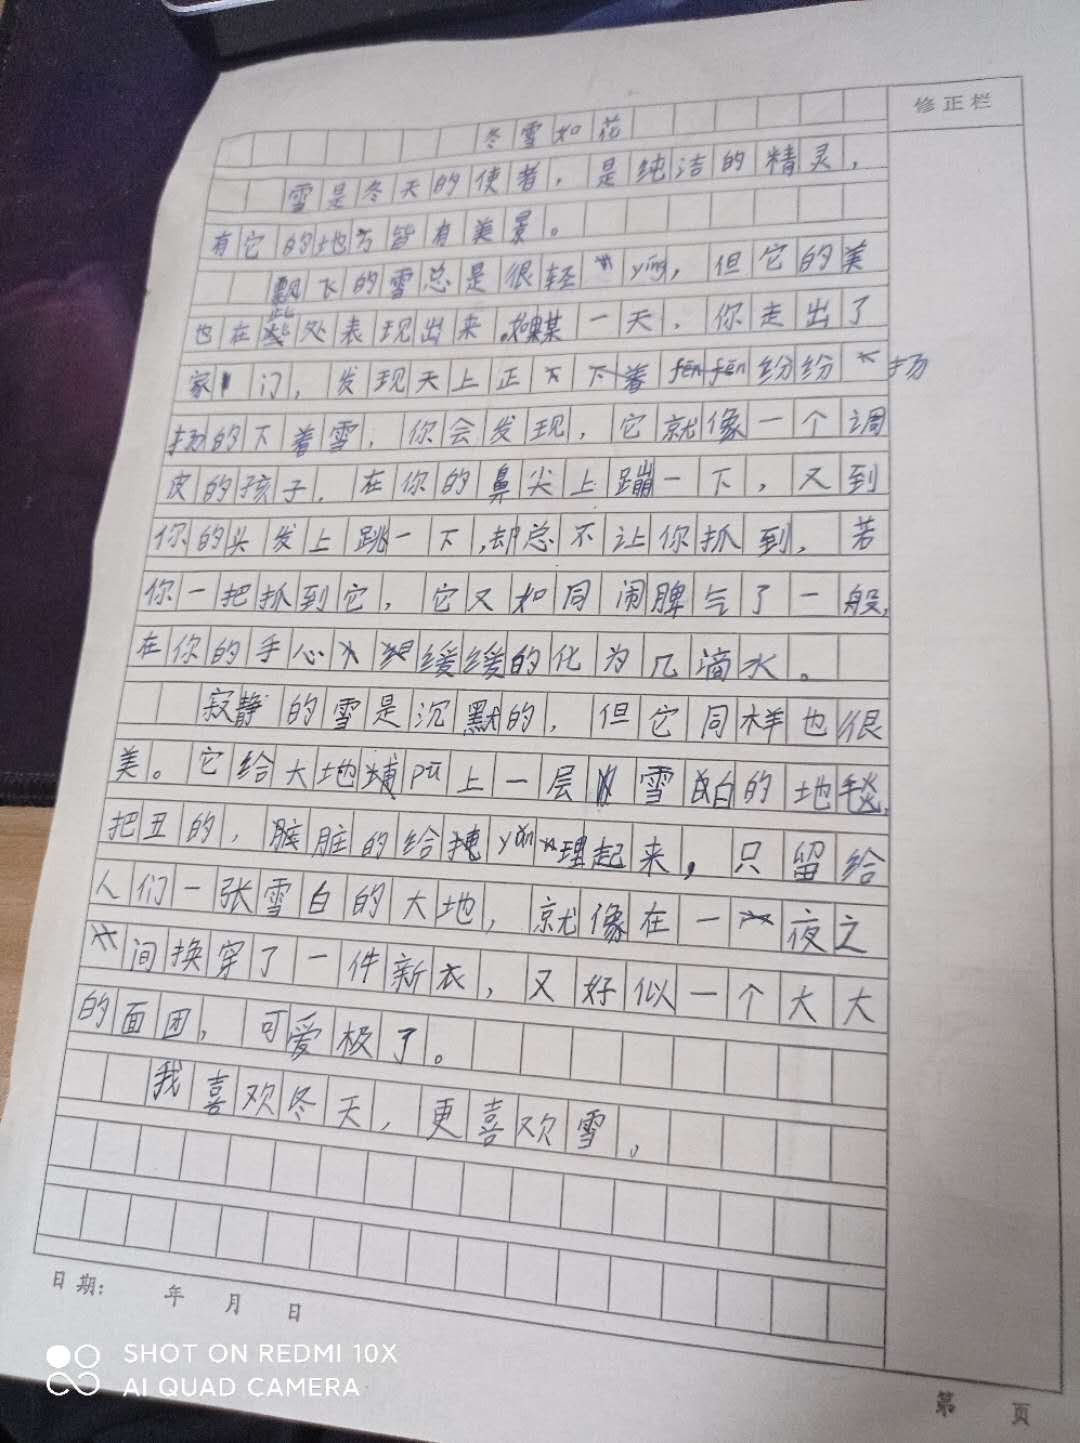 修正栏
冬雪如花
雪是冬天的使者，是纯洁的精灵，
有它的地方皆有美景。
飘飞的雪总是很轻yíng，但它的美
也在此处表现出来。如果某一天，你走出了
家门，发现天上正下下着fēnfēn纷纷扬
扬的下着雪，你会发现，它就像一个调
皮的孩子，在你的鼻尖上蹦一下，又到
你的头发上跳一下，却总不让你抓到，若
你一把抓到它，它又如同闹脾气了一般，
在你的手心缓缓的化为几滴水。
寂静的雪是沉默的，但它同样也很
美。它给大地pū上一层雪白的地毯，
把丑的，脏脏的给掩yǎn埋起来，只留给
人们一张雪白的大地，就像在一夜之
间换穿了一件新衣，又好似一个大大
的面团，可爱极了。
我喜欢冬天，更喜欢雪。
日期： 年 月 日
SHOT ON REDMI 10X
AI QUAD CAMERA
第 页